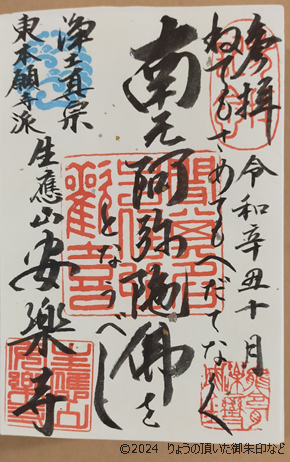 参拝
令和辛丑十月
ねてもさめてもへだてなく
南无阿弥陁佛を
となうべし
浄土真宗
東本願寺派
生應山安樂寺
©2024 りょうの頂いた御朱印など